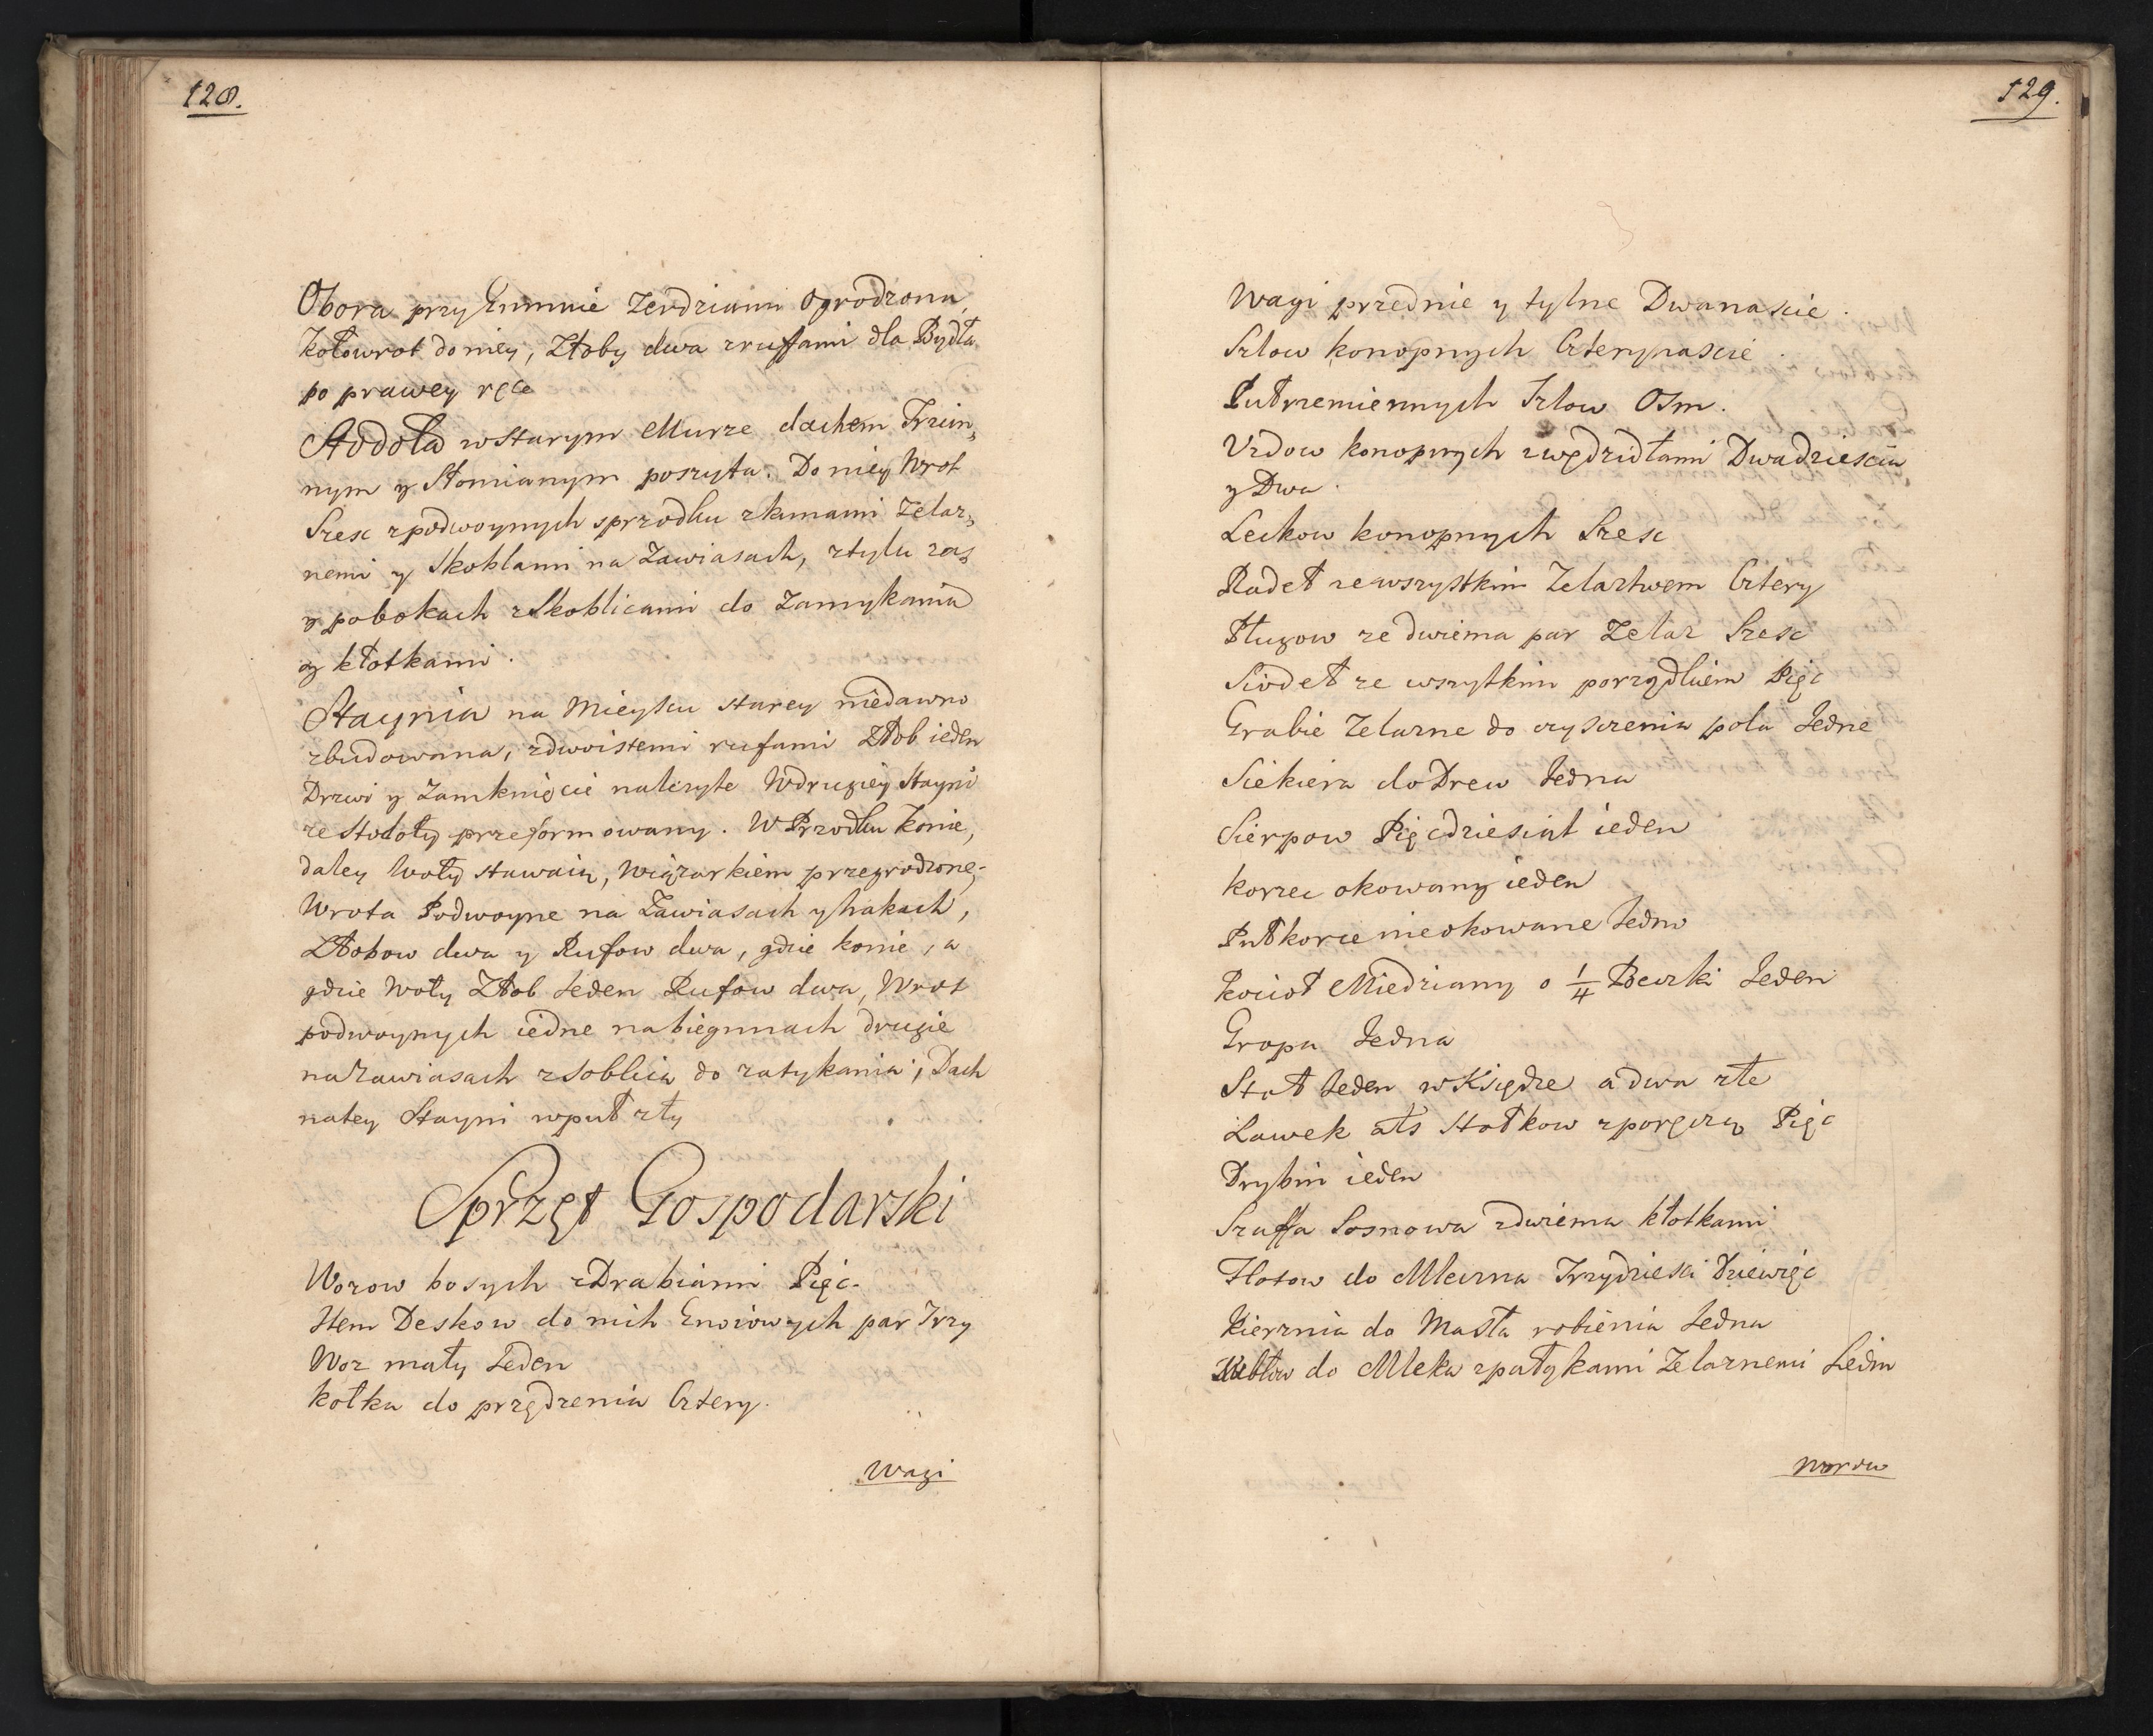 128.
Obora przy Gumnie Zerdziami Ogrodzona,
Kołowrot do niey, Złoby dwa zruffami dla Bydła
po prawey ręce
Stodoła w Starym Murze dachem Trzcin,,
nym y Słomianym poszyta. Do niey Wrot
Szesc zpodwoynych zprzodku zkunami Zelaz,,
nemi y Skoblami na Zawiasach, ztylu zas
y pobokach zSkoblicami do Zamykania
y kłotkami.
Staynia na Mieyscu starey niedawno
zbudowana, zdwoistemi rufami Złob ieden
Drzwi y Zamknięcie nalezyte Wdrugiey Stayni
ze Stodoły przeformowany. W Przodku konie,
daley woły stawaią, Wiązarkiem przegrodzone,
Wrota Podwoyne na Zawiasach y hakach,
Złobow dwa y Rufow dwa, gdzie konie, a
gdzie Woły Złob Jeden Rufow dwa, Wrot
podwoynych iedne nabiegunach drugie
naZawiasach zSoblicą do zatykania; Dach
natey Stayni wpuł zły
Sprzęt Gospodarski
Wozow bosych zDrabiami Pięc.
Item Deskow do nich Gnoiowych par Trzy
Woz mały Jeden
kołka do przędzenia Cztery.
Wagi
129.
Wagi przednie y tylne Dwanascie.
Szlow konopnych Czternascie.
Pułrzemiennych Szlow Osm.
Uzdow konopnych zwędzidłami Dwadziescia
y Dwa.
Leckow konopnych Szesc
Radeł zewszystkim Zelaztwem Cztery
Pługow ze dwiema par Zelaz Szesc
Siodeł ze wszytkim porządkiem Pięc
Grabie Zelazne do czyszczenia pola Jedne
Siekiera do Drew Jedna
Sierpow Pięcdziesiąt ieden
korzec okowany ieden
Pułkorce nieokowane Jedno
Kocioł Miedziany o 1/4 Beczki Jeden
Gropa Jedna
Stoł Jeden wKsiędze a dwa złe
Ławek ałs Stołkow zporęczą Pięc
Drybin ieden
Szaffa Sosnowa zdwiema kłotkami
do Trzydziesci Dziewięc
Kierznia do Masła robienia Jedna
do Mleka zpałykami Zelaznemi Jedm
Worow